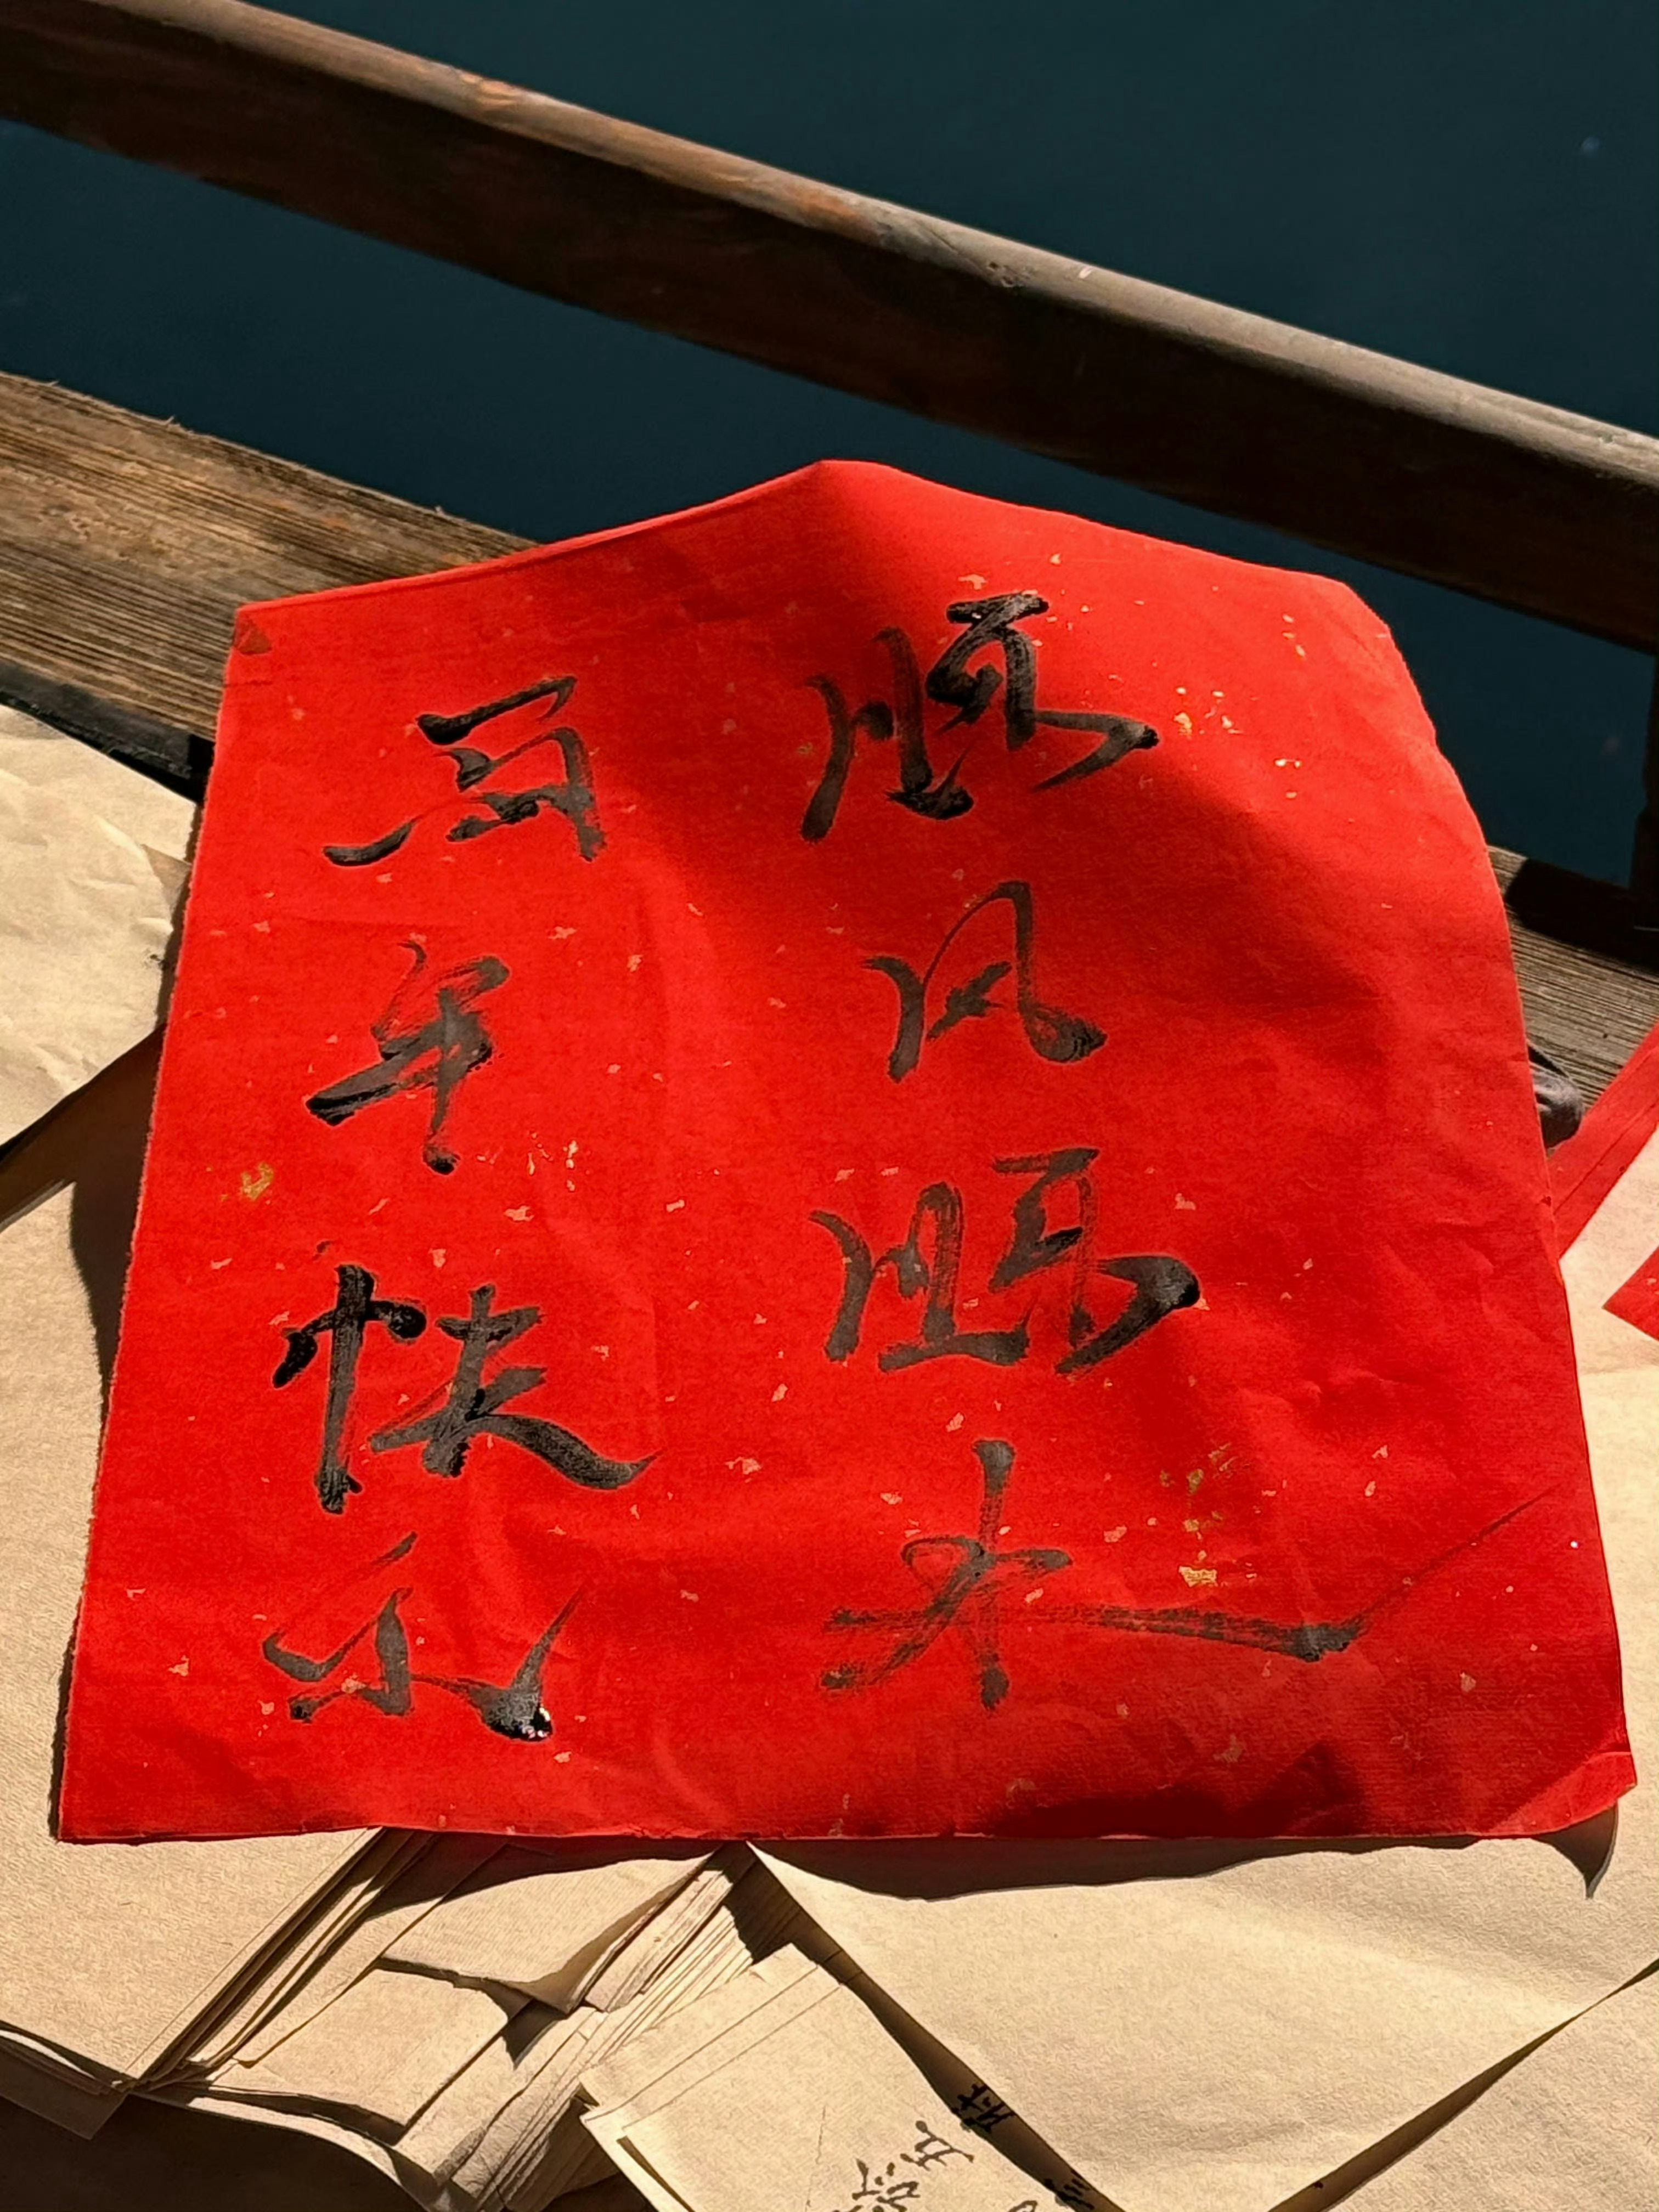 顺风顺水
马年快乐